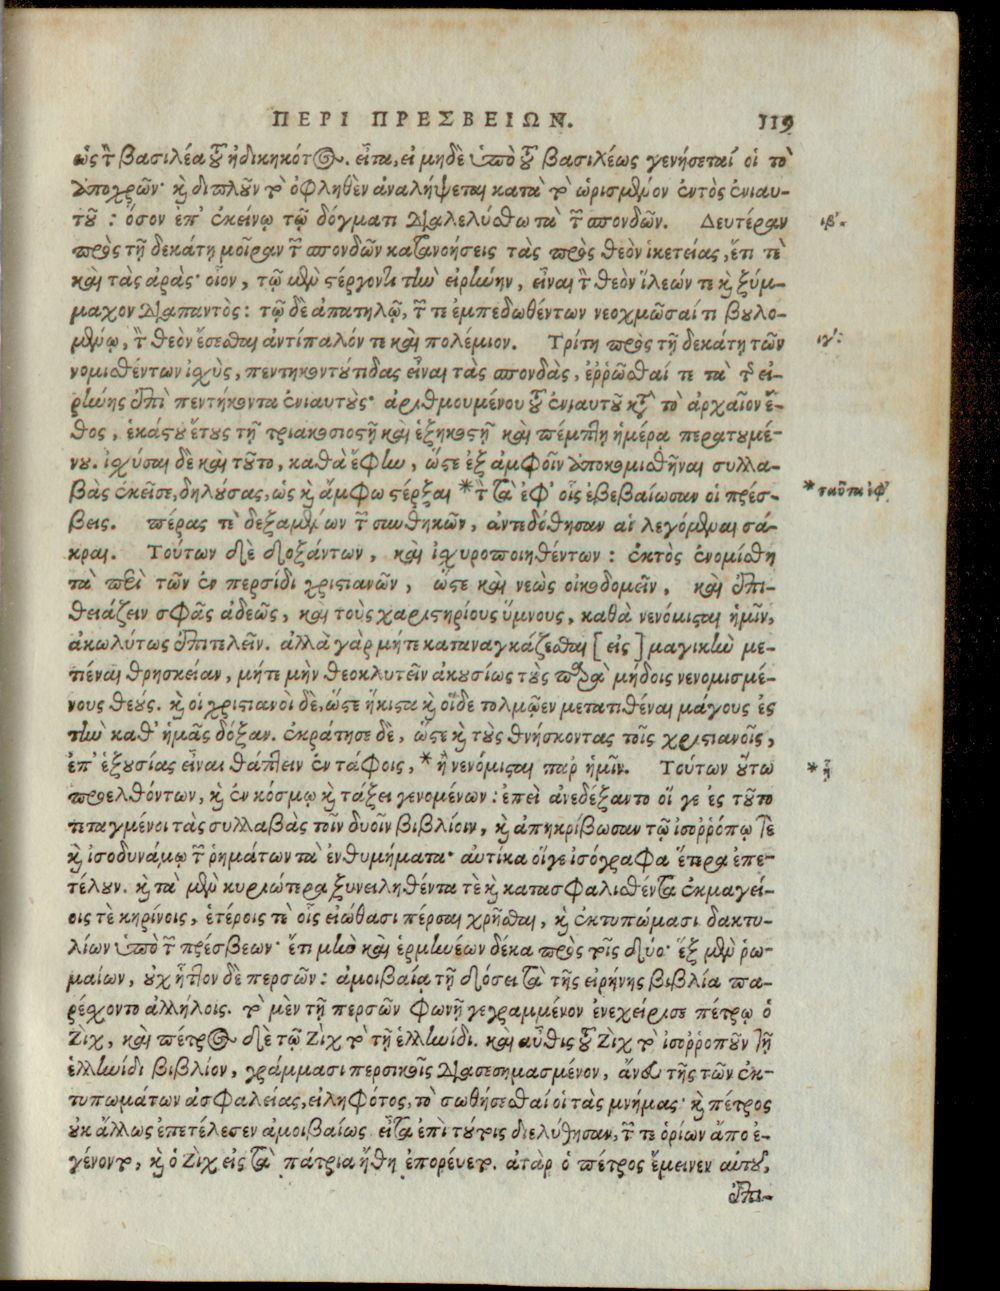 ΠΕΡΙ ΠΡΕΣΒΕΙΩΝ. 119
ὡς τὸν βασιλέα τοῦ ἠδικηκότος. εἶτα, εἰ μηδὲ ὑπὸ τοῦ βασιλέως γενήσεταί οἱ τὸ
ἀποχρῶν· καὶ διπλοῦν τὸ ὀφληθὲν ἀναλήψεται κατὰ τὸ ὡρισμένον ἐντὸς ἐνιαυ-
τοῦ : ὅσον ἐπ' ἐκείνῳ τῷ δόγματι διαλελύσθω τὰ τῶν σπονδῶν. Δευτέραν
ιβ'.
πρὸς τῇ δεκάτῃ μοῖραν τῶν σπονδῶν κατανοήσεις τὰς πρὸς θεὸν ἱκετείας, ἔτι τὲ
καὶ τὰς ἀράς· οἷον, τῷ μὲν στέργοντι τὴν εἰρήνην, εἶναι τὸν θεὸν ἵλεών τε καὶ ξύμ-
μαχον διαπαντός : τῷ δὲ ἀπατηλῷ, τῶν τε ἐμπεδωθέντων νεοχμῶσαί τι βουλο-
μένῳ, τὸν θεὸν ἔσεσθαι ἀντίπαλόν τε καὶ πολέμιον. Τρίτη πρὸς τῇ δεκάτῃ τῶν
ιγ'.
νομισθέντων ἰσχὺς, πεντηκοντούτιδας εἶναι τὰς σπονδὰς, ἐρρῶσθαί τε τὰ τῆς εἰ-
ρήνης ἐπὶ πεντήκοντα ἐνιαυτούς· ἀριθμουμένου τοῦ ἐνιαυτοῦ κατὰ τὸ ἀρχαῖον ἔ-
θος, ἑκάστου ἔτους τῇ τριακοσιοστῇ καὶ ἑξηκοστῇ καὶ πέμπτῃ ἡμέρᾳ περατουμέ-
νου. ἰσχύσαι δὲ καὶ τοῦτο, καθὰ ἔφην, ὥστε ἐξ ἀμφοῖν ἀποκομισθῆναι συλλα-
βὰς ἐκεῖσε, δηλούσας, ὡς καὶ ἄμφω στέρξαι *τῶν τὰ ἐφ' οἷς ἐβεβαίωσαν οἱ πρέσ-
*ταῦτα ἐφ'
βεις. πέρας τὲ δεξαμένων τῶν συνθηκῶν, ἀντεδόθησαν αἱ λεγόμεναι σά-
κραι. Τούτων δὲ δοξάντων, καὶ ἰσχυροποιηθέντων : ἐκτὸς ἐνομίσθη
τὰ περὶ τῶν ἐν περσίδι χριστιανῶν, ὥστε καὶ νεὼς οἰκοδομεῖν, καὶ ἐπι-
θειάζειν σφᾶς ἀδεῶς, καὶ τοὺς χαριστηρίους ὕμνους, καθὰ νενόμισται ἡμῖν,
ἀκωλύτως ἐπιτελεῖν. ἀλλὰ γὰρ μήτε καταναγκάζεσθαι [εἰς] μαγικὴν με-
τιέναι θρησκείαν, μήτε μὴν θεοκλυτεῖν ἀκουσίως τοὺς παρὰ μήδοις νενομισμέ-
νους θεούς. καὶ οἱ χριστιανοὶ δὲ, ὥστε ἥκιστα καὶ οἵδε τολμῷεν μετατιθέναι μάγους ἐς
τὴν καθ' ἡμᾶς δόξαν. ἐκράτησε δὲ, ὥστε καὶ τοὺς θνήσκοντας τοῖς χριστιανοῖς,
ἐπ' ἐξουσίας εἶναι θάπτειν ἐν τάφοις, *ἢ νενόμισται παρ ἡμῖν. Τούτων οὕτω
*ᾗ
προελθόντων, καὶ ἐν κόσμῳ καὶ τάξει γενομένων : ἐπεὶ ἀνεδέξαντο οἵ γε ἐς τοῦτο
τεταγμένοι τὰς συλλαβὰς τοῖν δυοῖν βιβλίοιν, καὶ ἀπηκρίβωσαν τῷ ἰσορρόπῳ τε
καὶ ἰσοδυνάμῳ τῶν ῥημάτων τὰ ἐνθυμήματα· αὐτίκα οἵγε ἰσόγραφα ἕτερα ἐπε-
τέλουν. καὶ τὰ μὲν κυριώτερα ξυνειληθέντα τὲ καὶ κατασφαλισθέντα ἐκμαγεί-
οις τὲ κηρίνοις, ἑτέροις τὲ οἷς εἰώθασι πέρσαι χρῆσθαι, καὶ ἐκτυπώμασι δακτυ-
λίων ὑπὸ τῶν πρέσβεων· ἔτι μὴν καὶ ἑρμηνέων δέκα πρὸς τοῖς δύο· ἓξ μὲν ῥω-
μαίων, οὐχ ἧττον δὲ περσῶν : ἀμοιβαίᾳ τῇ δόσει τὰ τῆς εἰρήνης βιβλία πα-
ρέσχοντο ἀλλήλοις. τὸ μὲν τῇ περσῶν φωνῇ γεγραμμένον ἐνεχείρισε πέτρῳ ὁ
Ζὶχ, καὶ πέτρος δὲ τῷ Ζὶχ τὸ τῇ ἑλληνίδι. καὶ αὖθις τοῦ Ζὶχ τὸ ἰσορροποῦν τῇ
ἑλληνίδι βιβλίον, γράμμασι περσικοῖς διασεσημασμένον, ἄνευ τῆς τῶν ἐκ-
τυπωμάτων ἀσφαλείας, εἰληφότος, τὸ σωθήσεσθαί οἱ τὰς μνήμας· καὶ πέτρος
οὐκ ἄλλως ἐπετέλεσεν ἀμοιβαίως εἶτα ἐπὶ τούτοις διελύθησαν, τῶν τε ὁρίων ἄπο ἐ-
γένοντο, καὶ ὁ Ζὶχ εἰς τὰ πάτρια ἤθη ἐπορεύετο. ἀτὰρ ὁ πέτρος ἔμεινεν αὐτοῦ,
ἐπι-